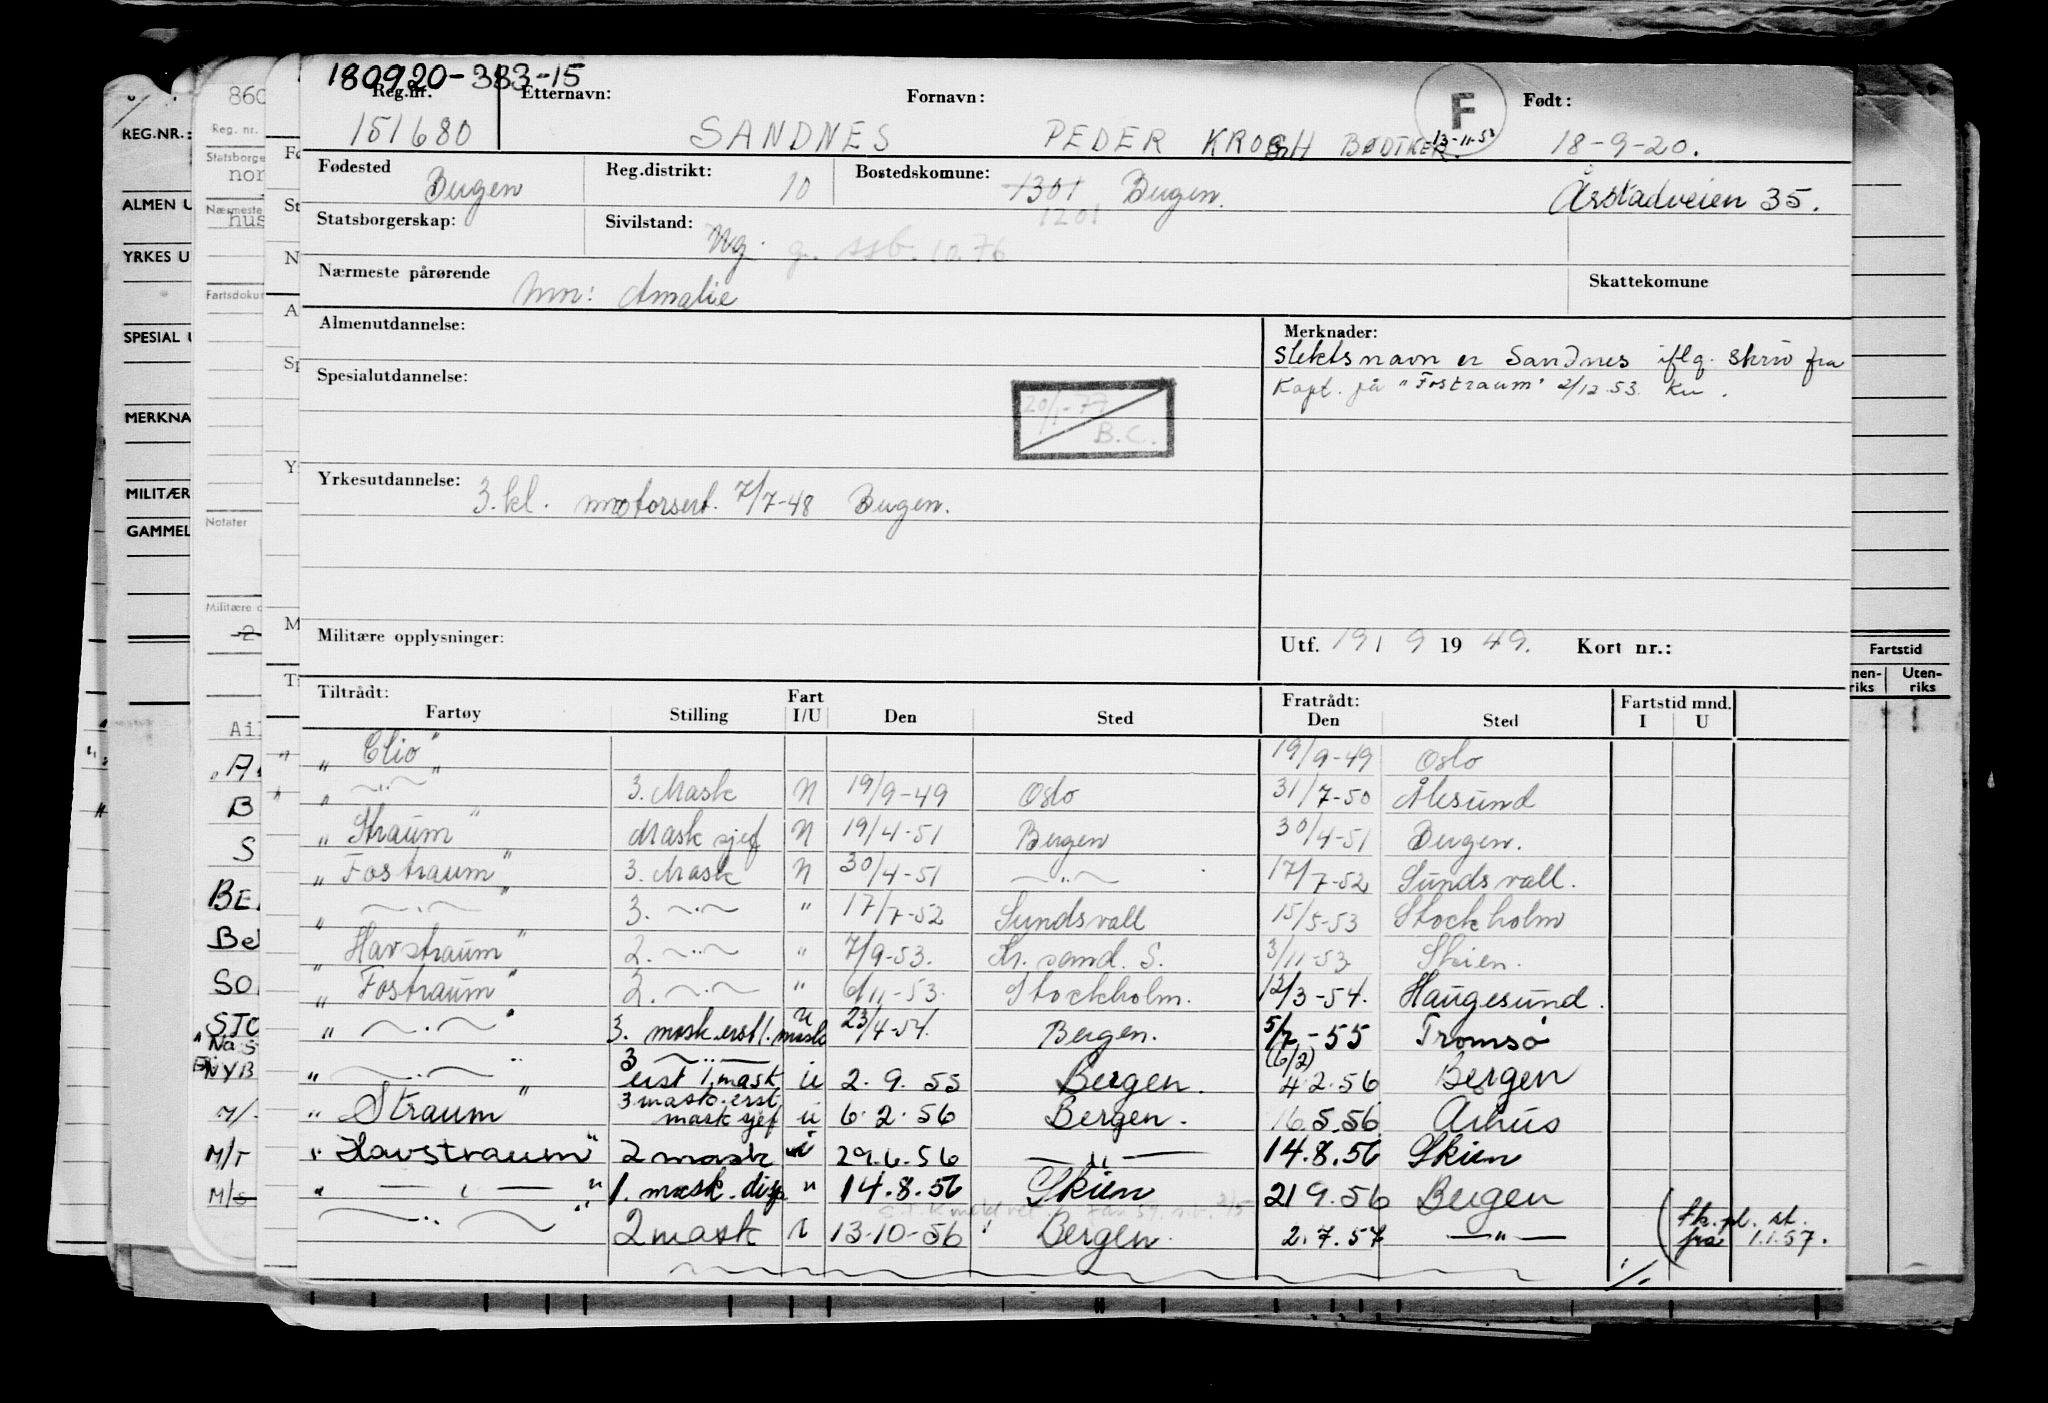 180920-383-15
Reg.nr. Etternavn: Fornavn: F Født:
151680 SANDNES PEDER KROGH BØDTKER. 13-11-53 18-9-20.
Fødested Bergen Reg.distrikt: 10 Bostedskomune: 1301 Bergen. Årstadveien 35.
1201
Statsborgerskap: Sivilstand: Ug. g. ssb. 10.76
Nærmeste pårørende Mor: Amalie Skattekomune
Almenutdannelse: Merknader:
Slektsnavn er Sandnes iflg. skriv fra
Kapt. på "Fostraum" 2/12.53. Kn.
Spesialutdannelse:
20/1-77
B.C.
Yrkesutdannelse: 3.kl. motorsert. 7/7-48 Bergen.
Militære opplysninger: Utf. 19/ 9 19 49. Kort nr.:
Tiltrådt: Fart Fratrådt: Fartstid mnd.
Fartøy Stilling I/U Den Sted Den Sted I U
"Clio" 19/9-49 Oslo
" —"— " 3. Mask N 19/9-49 Oslo 31/7-50 Ålesund
"Straum" Mask sjef N 19/4-51 Bergen 30/4-51 Bergen.
"Fostraum" 3. Mask N 30/4-51 —"— 17/7-52 Sundsvall.
" —"— " 3. —"— " 17/7-52 Sundsvall 15/5-53 Stockholm
"Havstraum" 2. —"— " 7/9-53. Kr. sand. S. 3/11-53 Skien.
"Fostraum" 2. —"— " 6/11-53. Stockholm. 12/3-54. Haugesund.
" —"— " 3. mask.erst 1. mask u 23/4-54. Bergen. 5/7-55 Tromsø
" —"— " 3 —"— erst 1. mask u 2.9.55 Bergen. (6/2) 4.2.56 Bergen
"Straum" 3 mask.erst mask sjef u 6.2.56 Bergen. 16.5.56 Århus
"Havstraum" 2 mask i 29.6.56 —"— 14.8.56 Skien
" —"— " 1. mask.disp " 14.8.56 Skien 21 9.56 Bergen
—"— 2 mask i 13-10-56 Bergen. 2.7.57 —"— (tk.pl. st. fra 1.1.57.
860
REG.NR.:
Reg. nr.
Statsborge
nor
ALMEN U
Nærmeste
hus
YRKES U
Fartsdokum
SPESIAL U
MERKNA
MILITÆR
Notater
GAMMEL
Militære o
-2
Fartstid
nen-
riks
Uten-
riks
Ai
"A
B
S
BE
Be
SO
STO
NYB
M/
M/T
M/S